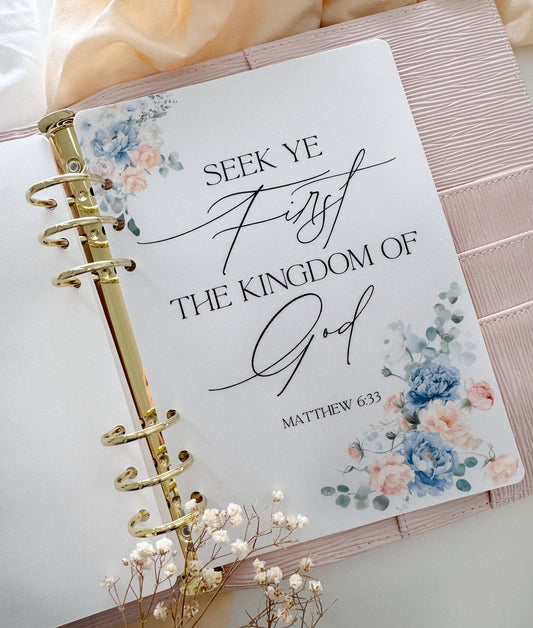 SEEK YE
First
THE KINGDOM OF
God
MATTHEW 6:33